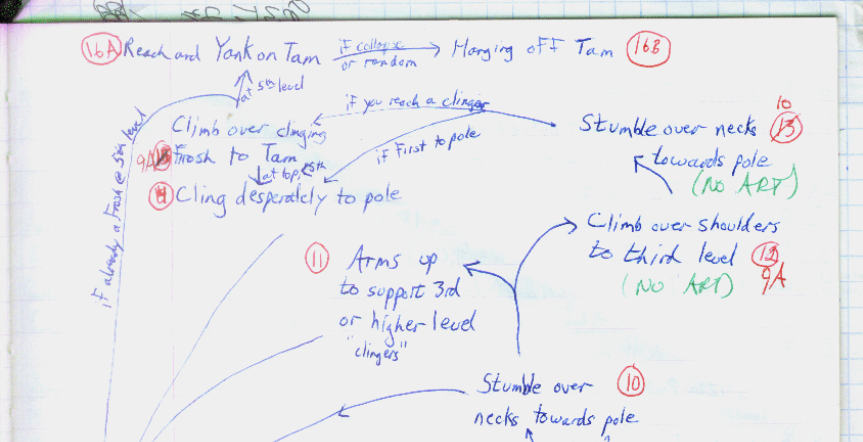 16A Reach and Yank on Tam if collapse or random Hanging off Tam 16B
at 5th level
if you reach a clinger
Climb over clinging
Frosh to Tam
9A
at top, <5th
if First to pole
Cling desperately to pole
if already a Frosh @ 5th level
10
Stumble over necks 13
towards pole
(NO ART)
Climb over shoulders
to third level 12
(NO ART) 9A
11 Arms up
to support 3rd
or higher level
"clingers"
Stumble over 10
necks towards pole